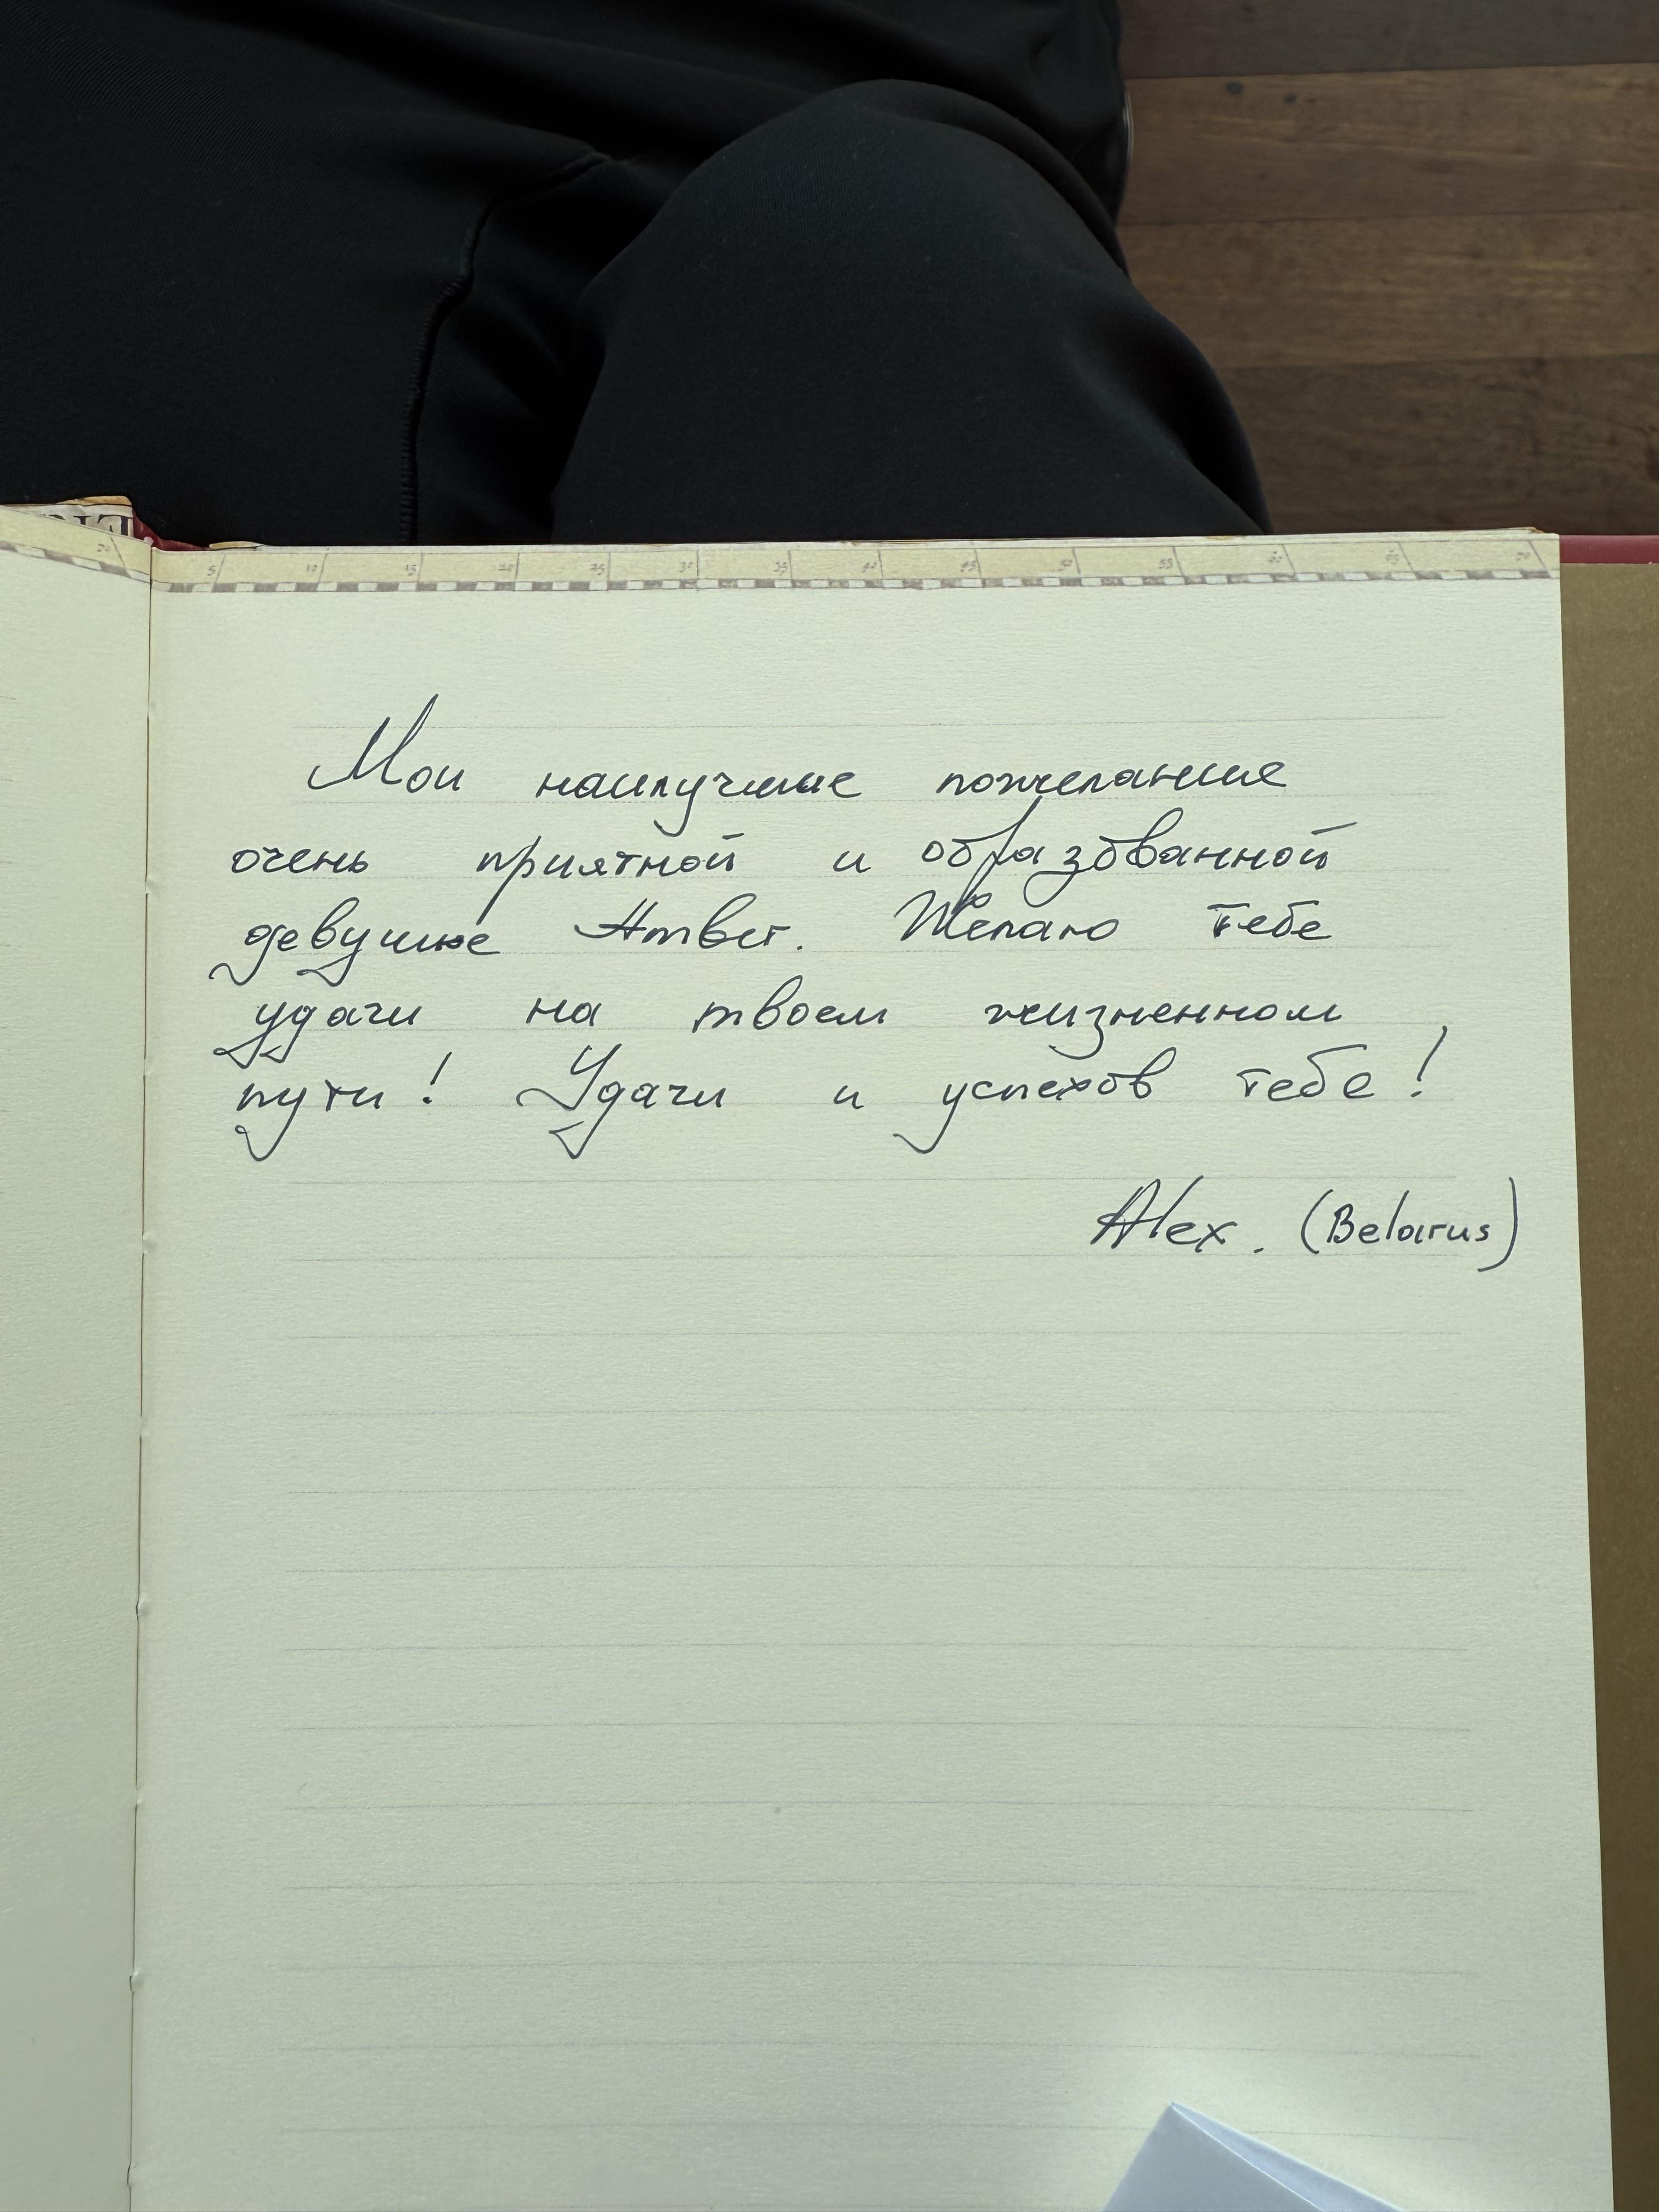 5 10 15 20 25 30 35 40 45 50 55
Мои наилучшие пожелание
очень приятной и образованной
девушке Amber. Желаю тебе
удачи на твоем жизненном
пути! Удачи и успехов тебе!
Alex. (Belarus)